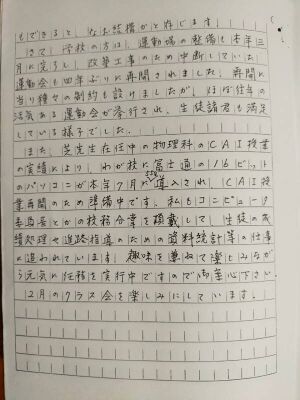 もできると、なお結構かと存じます。
さて、学校の方は、運動場の整備も本年三
月に完了し、改築工事のため中断していた
運動会も四年ぶりに再開されました。再開に
当り種々の制約も設けましたが、ほぼ往年の
活気ある運動会が挙行され、生徒諸君も満足
している様子でした。
また、芝先生在任中の物理科のCAI授業
の実績により、わが校に富士通の16ビット
のパソコンが本年7月に導入され、CAI授
業再開のための準備中です。私もコンピュータ
委員長とかの校務分掌を頂戴して、生徒の成
績処理や進路指導のための資料統計等の仕事
に追われています。趣味を兼ねて楽しみなが
ら元気に任務を実行中ですので御安心下さい。
12月のクラス会を楽しみにしています。